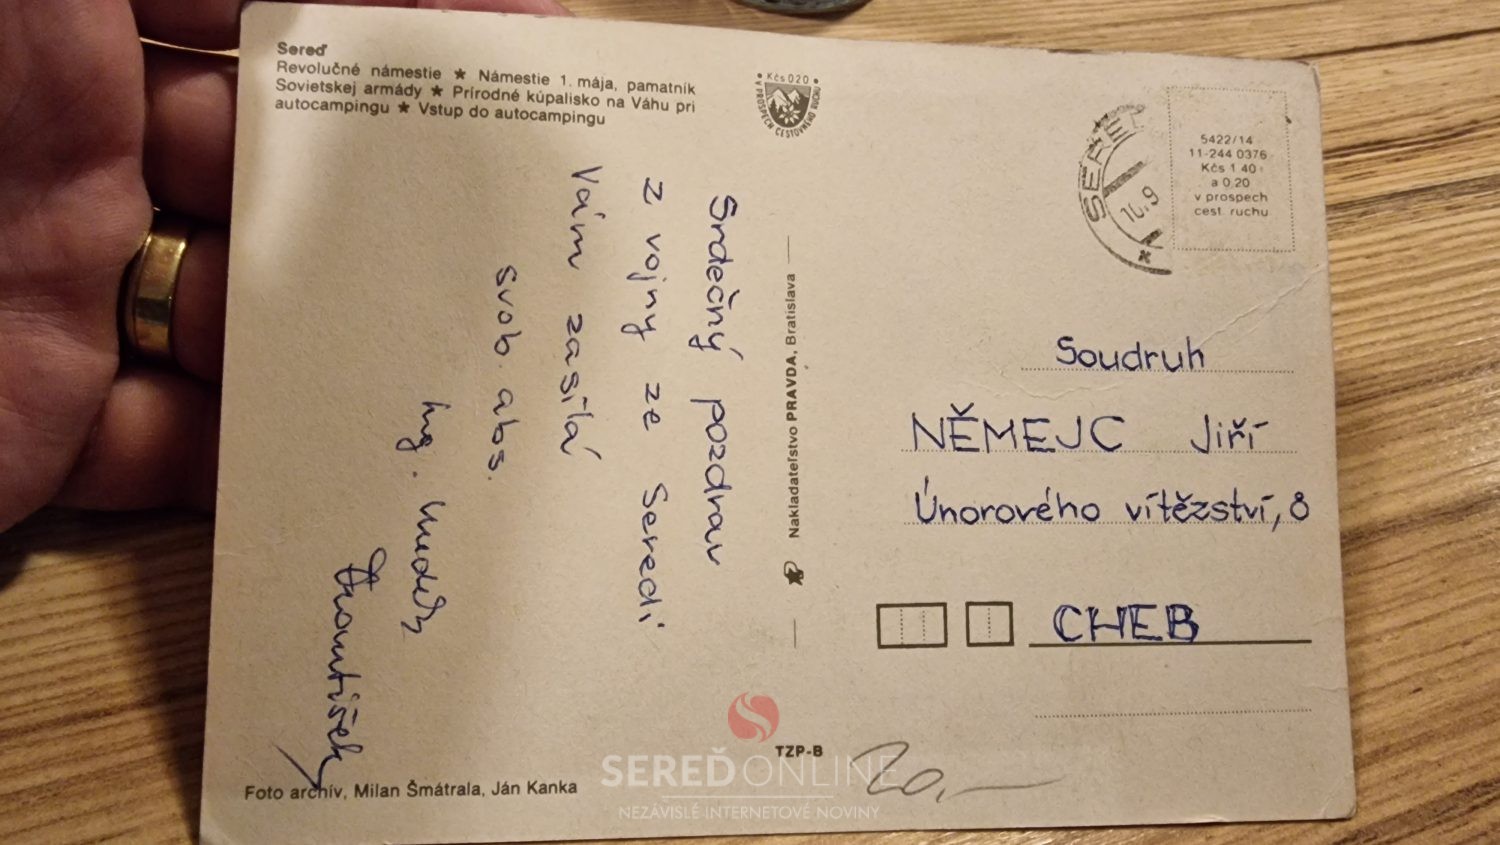 Sereď
Revolučné námestie ★ Námestie 1. mája, pamatník
Sovietskej armády ★ Prírodné kúpalisko na Váhu pri
autocampingu ★ Vstup do autocampingu
• Kčs 020 •
V PROSPECH CESTOVNÉHO RUCHU
SEREĎ
10.9
5422/14
11-244 0376
Kčs 1 40
a 0,20
v prospech
cest. ruchu
Srdečný pozdrav
z vojny ze Seredi
Vám zasílá
svob. abs.
Ing.
František
Nakladateľstvo PRAVDA, Bratislava
Soudruh
NĚMEJC Jiří
Únorového vítězství, 8
CHEB
TZP-B
20,—
Foto archív, Milan Šmátrala, Ján Kanka
SEREĎONLINE
NEZÁVISLÉ INTERNETOVÉ NOVINY